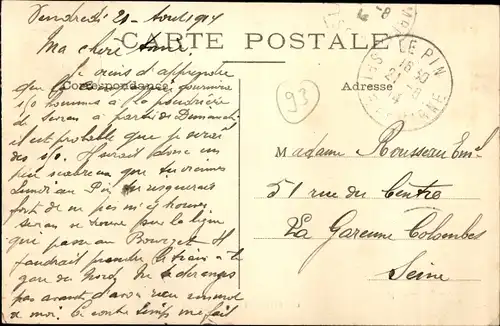 Vendredi 21 Août 1914
CARTE POSTALE
Ma chère
Je viens d'apprendre
que
Correspondance
Adresse
hommes à la poudrière
de Sevran à partir de Dimanche
il est probable que je serai
des Il serait donc un
peu que tu viennes
Lundi au Pin tu risquerais
fort de ne pas m'y trouver
Sevran se trouve sur la ligne
que passe au Bourget. Il
faudrait prendre le train à la
gare du Nord. Ne te déranges
pas avant d'avoir reçu
de moi. Ce temps me fait
93
LE PIN
18 30
21 - 8
14
Madame Rousseau Emile
51 rue du Centre
La Garenne Colombes
Seine